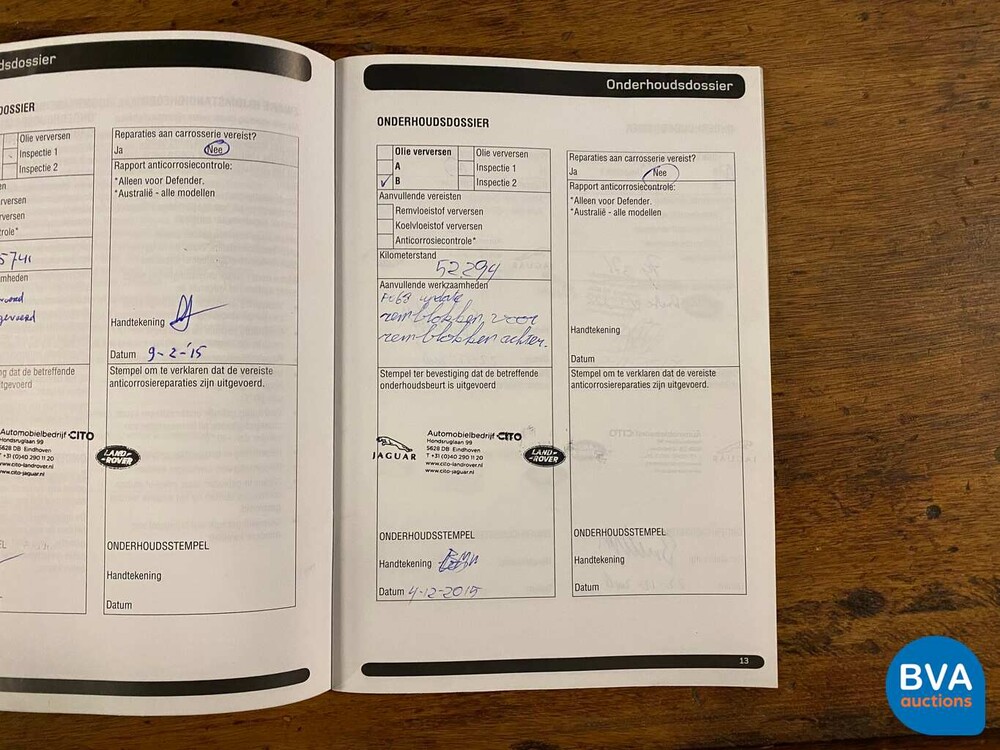 dsdossier
DOSSIER
Olie verversen
Inspectie 1
Inspectie 2
en
rversen
versen
role*
5741
mheden
ng dat de betreffende
tgevoerd
Automobielbedrijf CITO
Hondsruglaan 99
5628 DB Eindhoven
T +31 (0)40 290 11 20
www.cito-landrover.nl
www.cito-jaguar.nl
LAND-
ROVER
EL
Reparaties aan carrosserie vereist?
Ja Nee
Rapport anticorrosiecontrole:
*Alleen voor Defender.
*Australië - alle modellen
Handtekening
Datum 9-2-'15
Stempel om te verklaren dat de vereiste
anticorrosiereparaties zijn uitgevoerd.
ONDERHOUDSSTEMPEL
Handtekening
Datum
Onderhoudsdossier
ONDERHOUDSDOSSIER
Olie verversen
A
B
Olie verversen
Inspectie 1
Inspectie 2
Aanvullende vereisten
Remvloeistof verversen
Koelvloeistof verversen
Anticorrosiecontrole*
Kilometerstand
52.294
Aanvullende werkzaamheden
update
remblokken voor
remblokken achter.
Stempel ter bevestiging dat de betreffende
onderhoudsbeurt is uitgevoerd
JAGUAR
Automobielbedrijf CITO
Hondsruglaan 99
5628 DB Eindhoven
T +31 (0)40 290 11 20
www.cito-landrover.nl
www.cito-jaguar.nl
LAND-
ROVER
ONDERHOUDSSTEMPEL
Handtekening
Datum 4-12-2015
Reparaties aan carrosserie vereist?
Ja Nee
Rapport anticorrosiecontrole:
*Alleen voor Defender.
*Australië - alle modellen
Handtekening
Datum
Stempel om te verklaren dat de vereiste
anticorrosiereparaties zijn uitgevoerd.
ONDERHOUDSSTEMPEL
Handtekening
Datum
13
BVA
auctions